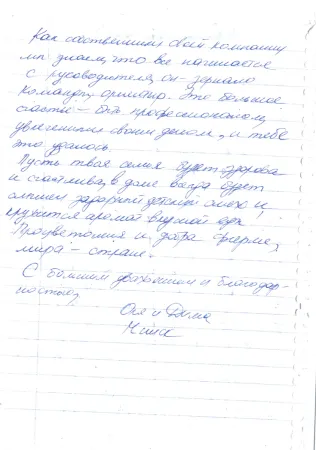 Как собственники своей компании
мы знаем, что все начинается
с руководителя, он – зеркало
команды,
счастье – быть профессионалом,
увлеченным своим делом, и тебе
это удалось.
Пусть твоя семья будет здорова
и счастлива, в доме всегда будет
слышен заразной детский смех и
кружится аромат вкусной еды
Процветания и добра ферме,
мира – стране.
С большим уважением и благодар-
ностью,
Оля и Дима
Минск